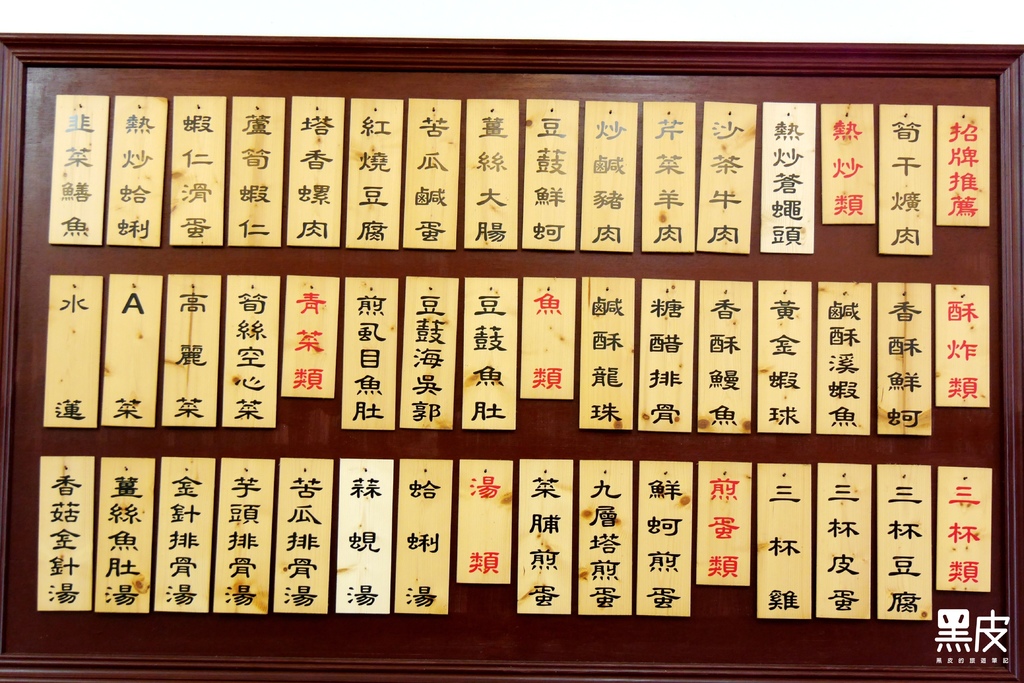 招牌推薦
筍干爌肉
熱炒類
熱炒蒼蠅頭
沙茶牛肉
芹菜羊肉
炒鹹豬肉
豆鼓鮮蚵
薑絲大腸
苦瓜鹹蛋
紅燒豆腐
塔香螺肉
蘆筍蝦仁
蝦仁滑蛋
熱炒蛤蜊
韭菜鱔魚
酥炸類
香酥鮮蚵
鹹酥溪蝦魚
黃金蝦球
香酥鰻魚
糖醋排骨
鹹酥龍珠
魚類
豆鼓魚肚
豆鼓海吳郭
煎虱目魚肚
青菜類
筍絲空心菜
高麗菜
A菜
水蓮
三杯類
三杯豆腐
三杯皮蛋
三杯雞
煎蛋類
鮮蚵煎蛋
九層塔煎蛋
菜脯煎蛋
湯類
蛤蜊湯
蒜蜆湯
苦瓜排骨湯
芋頭排骨湯
金針排骨湯
薑絲魚肚湯
香菇金針湯
黑皮
黑皮的旅遊筆記